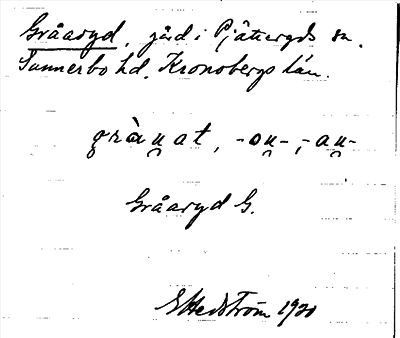 Gråaryd, gård i Pjätteryds sn.
Sunnerbo hd. Kronobergs län.
grànat, -on-, -an-
Gråaryd G.
EHedström 1920